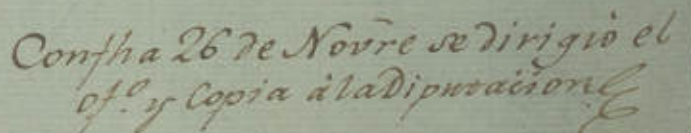 Con fha 26 de Novre se dirigió el
ofo. y Copia á la Diputacion